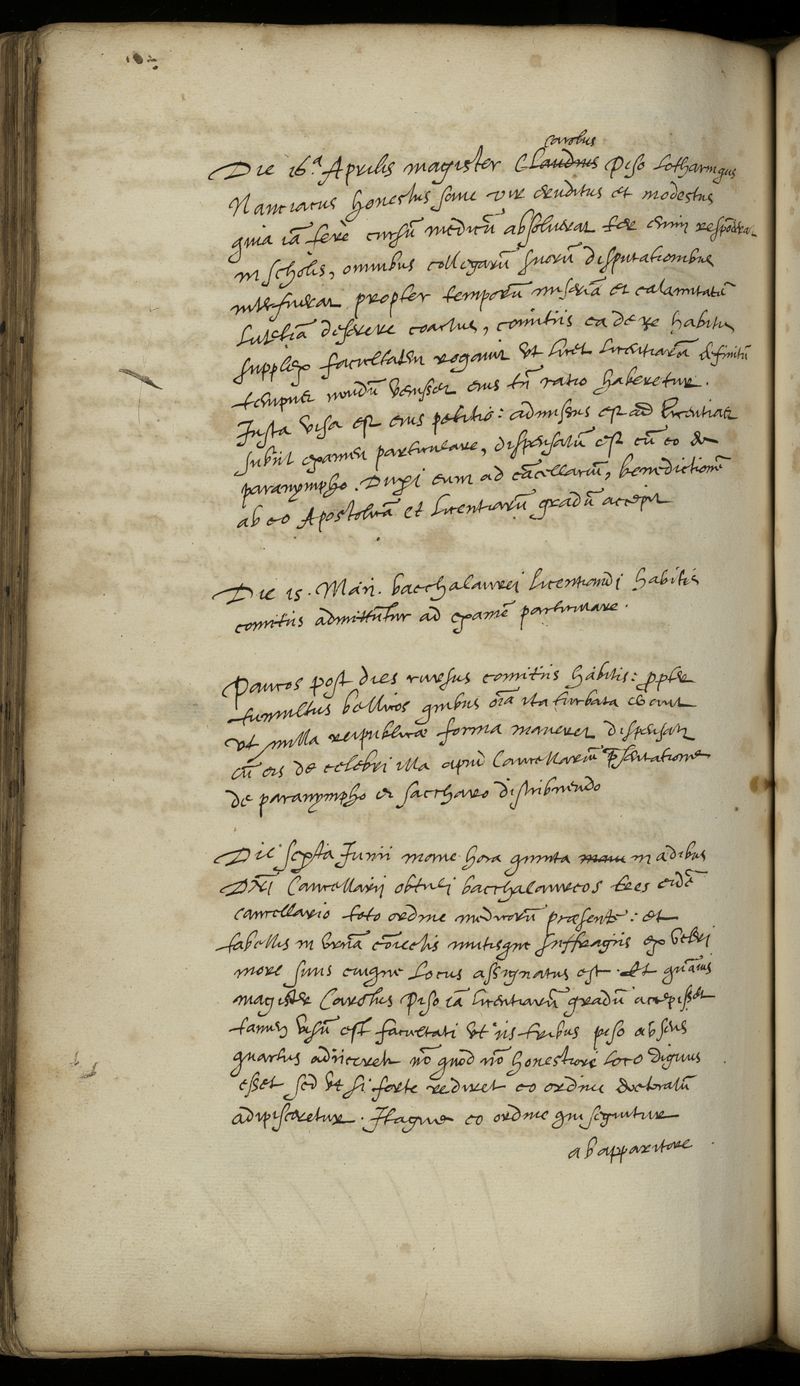 Carolus
Die 16.ª Aprilis magister Claudius Piso Lotharingus
Nanceiacus honestus sane vir eruditus et modestus
quia iā fere cursū medicū absoluerat ter enim respōderat
in scholis, omnibus collegarū suorū disputationibus
interfuerat propter temporū miseriā et calamitatē
Lutetiā deserere coactus, comitiis ea de re habitis
supplex facultatem rogauit ut licet licentiarū definitū
tempus nondū venisset eius tn̄ ratio haberetur.
Iusta visa est eius petitio: admissus est ad licentias
subiit examen particulare, dispensatū est cū eo de
paranympho. Duxi eum ad cācellariū, benedictionē
ab eo Apostolicā et licentiarū gradū accepit
Die 15. Maii. bacchalaurei licentiandi habitis
comitiis admittūtur ad examē particulare.
Paucos post dies rursus comitiis habitis: propter
tumultus bellicos quibus oīa ita turbata erant
ut nulla reipublicæ forma maneret dispensatū
cū eis de celebri illa apud Cancellariū p̄sentatione
de paranympho et saccharo distribuendo
Die sexta Junii mane hora quinta in ædibus
Dn̄i Cancellarij obtuli bacchalaureos tres eidē
cancellario toto ordine medicorū præsente: et
tabellis in urnā cōiectis mutisque suffragiis ex veteri
more suus cuique locus assignatus est. Et quāuis
magister Carolus Piso iā licentiarū gradū accepisset
tamen visū est facultati ut iis tribus piso absens
quartus adiiceretur nō quod nō honestiori loco dignus
esset sed ut si forte rediret eo ordine doctoratū
adipisceretur. Itaque eo ordine qui sequitur
ab apparitore